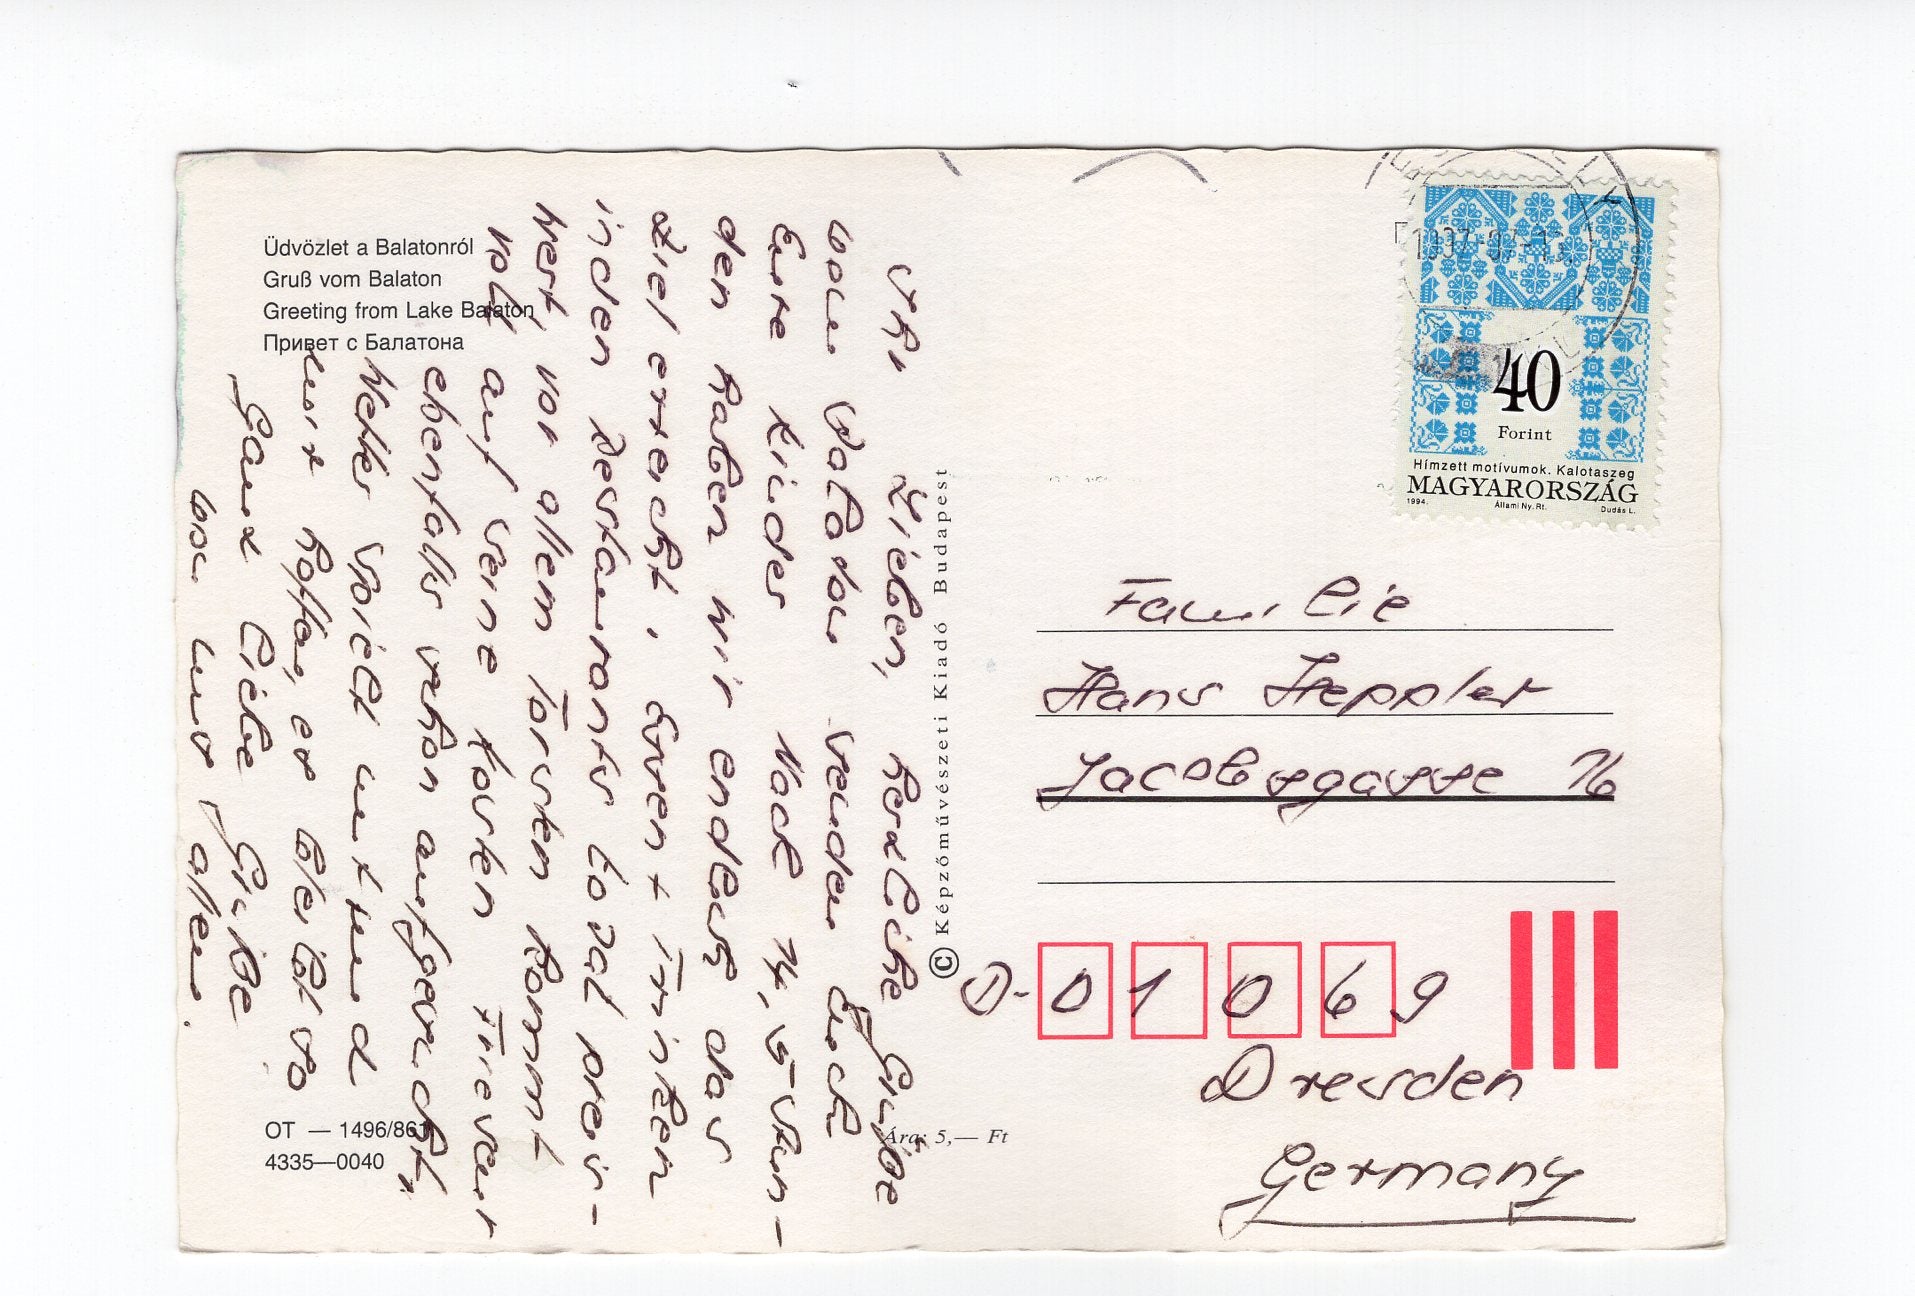 Üdvözlet a Balatonról
Gruß vom Balaton
Greeting from Lake Balaton
Привет с Балатона
Ihr Lieben, herzliche Grüße
vom Balaton senden Euch
Eure Kinder. Nach 14,5 Stun-
den haben wir endlich das
Ziel erreicht. Essen + Trinken
in den Restaurants total preis-
wert, vor allem Torsten kommt
voll auf seine Kosten. Friseur
ebenfalls schon aufgesucht.
Wetter spielt und
wir hoffen, es bleibt so
Ganz liebe Grüße
von uns allen.
OT — 1496/861
4335—0040
© Képzőművészeti Kiadó Budapest
Ára: 5,— Ft
40
Forint
Hímzett motívumok. Kalotaszeg
MAGYARORSZÁG
1994. Állami Ny. Rt. Dudás L.
Familie
Hans Heppler
Jacobsgasse 16
D-01069
Dresden
Germany